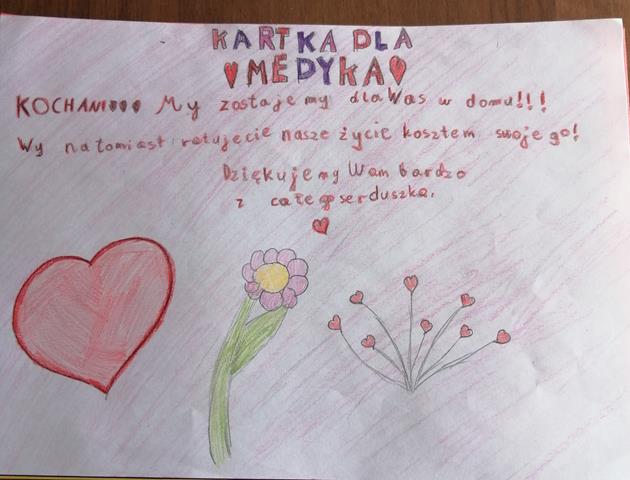 KARTKA DLA
MEDYKA
KOCHANI My zostajemy dla Was w domu!!!
Wy natomiast ratujecie nasze życie kosztem swojego!
Dziękujemy Wam bardzo
z całego serduszka.